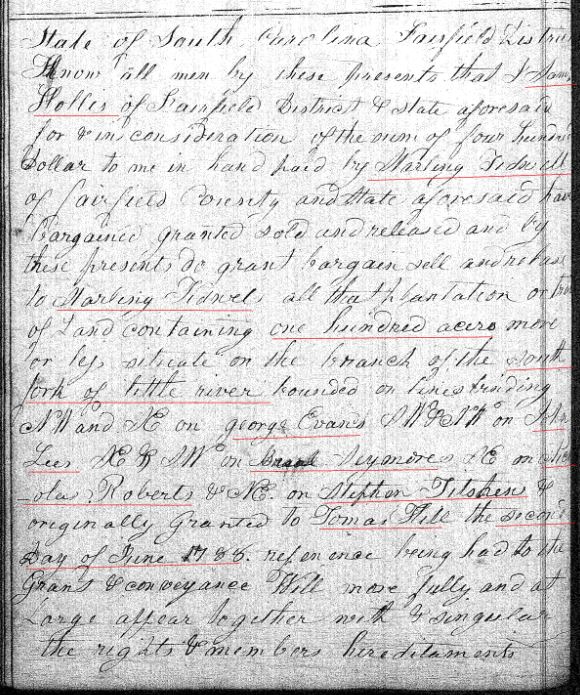 State of South Carolina Fairfield District
Know all men by these presents that I Sam
Hollis of Fairfield District & State aforesaid
for & in consideration of the sum of four hundred
Dollar to me in hand paid by Starling Tidwell
of fairfield County and State aforesaid have
Bargained granted sold and released and by
these presents do grant bargain sell and release
to Starling Tidwel all that plantation or tract
of Land containing one hundred acers more
or les situate on the branch of the south
fork of little river bounded on lines binding
NW and N on george Evans SW & NW on John
Lees & SW on Seymores on
Roberts & NE on Stephen Titshens &
originally Granted to Tomas Hill the second
Day of June 1788. referience being had to the
Grant & conveyance Will more fully and at
Large appear together with & singular
the rights & members hereditaments